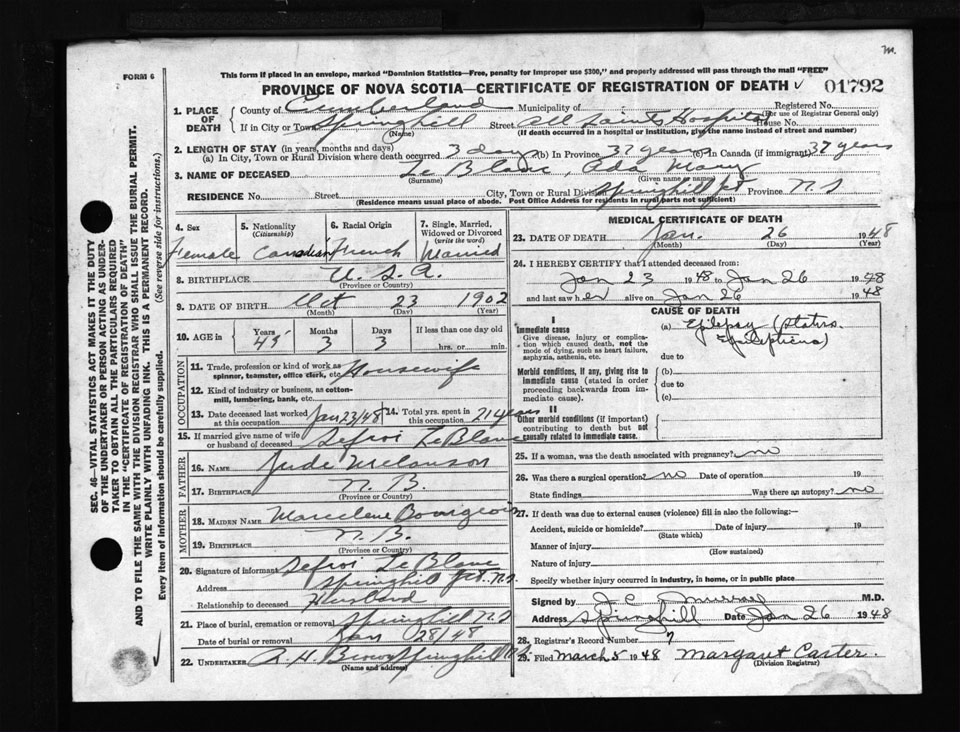 m.
FORM 6
This form if placed in an envelope, marked "Dominion Statistics—Free, penalty for improper use $300," and properly addressed will pass through the mail "FREE"
PROVINCE OF NOVA SCOTIA—CERTIFICATE OF REGISTRATION OF DEATH 01792
1. PLACE OF DEATH County of Cumberland Municipality of Registered No.
(For use of Registrar General only)
If in City or Town Springhill Street All Saints Hospital House No.
(Name) (If death occurred in a hospital or institution, give the name instead of street and number)
2. LENGTH OF STAY (in years, months and days)
(a) In City, Town or Rural Division where death occurred 3 days (b) In Province 37 years (c) In Canada (if immigrant) 37 years
3. NAME OF DECEASED Le Blanc, Ada Mary
(Surname) (Given name or names)
RESIDENCE No. Street City, Town or Rural Division Springhill Jct Province N.S
(Residence means usual place of abode. Post Office Address for residents in rural parts not sufficient)
4. Sex Female
5. Nationality (Citizenship) Canadian
6. Racial Origin French
7. Single, Married, Widowed or Divorced (write the word) Married
8. BIRTHPLACE U.S.A.
(Province or Country)
9. DATE OF BIRTH Oct 23 1902
(Month) (Day) (Year)
10. AGE in Years 45 Months 3 Days 3 If less than one day old
hrs. or min.
OCCUPATION
11. Trade, profession or kind of work as spinner, teamster, office clerk, etc. Housewife
12. Kind of industry or business, as cotton-mill, lumbering, bank, etc.
13. Date deceased last worked at this occupation Jan 23/48 14. Total yrs. spent in this occupation 21 years
15. If married give name of wife or husband of deceased Sefroi LeBlanc
FATHER
16. NAME Jude Melanson
17. BIRTHPLACE N.B.
(Province or Country)
MOTHER
18. MAIDEN NAME Marcelene Bourgeois
19. BIRTHPLACE N.B.
(Province or Country)
20. Signature of informant Sefroi Le Blanc
Address Springhill Jct. N.S.
Relationship to deceased Husband
21. Place of burial, cremation or removal Springhill N.S
Date of burial or removal Jan 28/48
22. UNDERTAKER A. H. Brown Springhill N.S.
(Name and address)
MEDICAL CERTIFICATE OF DEATH
23. DATE OF DEATH Jan. 26 1948
(Month) (Day) (Year)
24. I HEREBY CERTIFY that I attended deceased from:
Jan 23 1948 to Jan 26 1948
and last saw her alive on Jan 26 1948
CAUSE OF DEATH
I
Immediate cause
Give disease, injury or complication which caused death, not the mode of dying, such as heart failure, asphyxia, asthenia, etc.
(a) Epilepsy (Status Epilepticus)
due to
Morbid conditions, if any, giving rise to immediate cause (stated in order proceeding backwards from immediate cause).
(b)
due to
(c)
II
Other morbid conditions (if important) contributing to death but not causally related to immediate cause.
25. If a woman, was the death associated with pregnancy? no
26. Was there a surgical operation? no Date of operation 19
State findings Was there an autopsy? no
27. If death was due to external causes (violence) fill in also the following:—
Accident, suicide or homicide? Date of injury 19
(State which)
Manner of injury
(How sustained)
Nature of injury
Specify whether injury occurred in industry, in home, or in public place
Signed by J C Murray M.D.
Address Springhill Date Jan 26 1948
28. Registrar's Record Number 7
29. Filed March 5 1948 Margaret Carter.
(Division Registrar)
SEC. 46—VITAL STATISTICS ACT MAKES IT THE DUTY
OF THE UNDERTAKER OR PERSON ACTING AS UNDER-
TAKER TO OBTAIN ALL THE PARTICULARS REQUIRED
IN THE "CERTIFICATE OF REGISTRATION OF DEATH"
AND TO FILE THE SAME WITH THE DIVISION REGISTRAR WHO SHALL ISSUE THE BURIAL PERMIT.
WRITE PLAINLY WITH UNFADING INK. THIS IS A PERMANENT RECORD.
Every item of information should be carefully supplied. (See reverse side for instructions.)